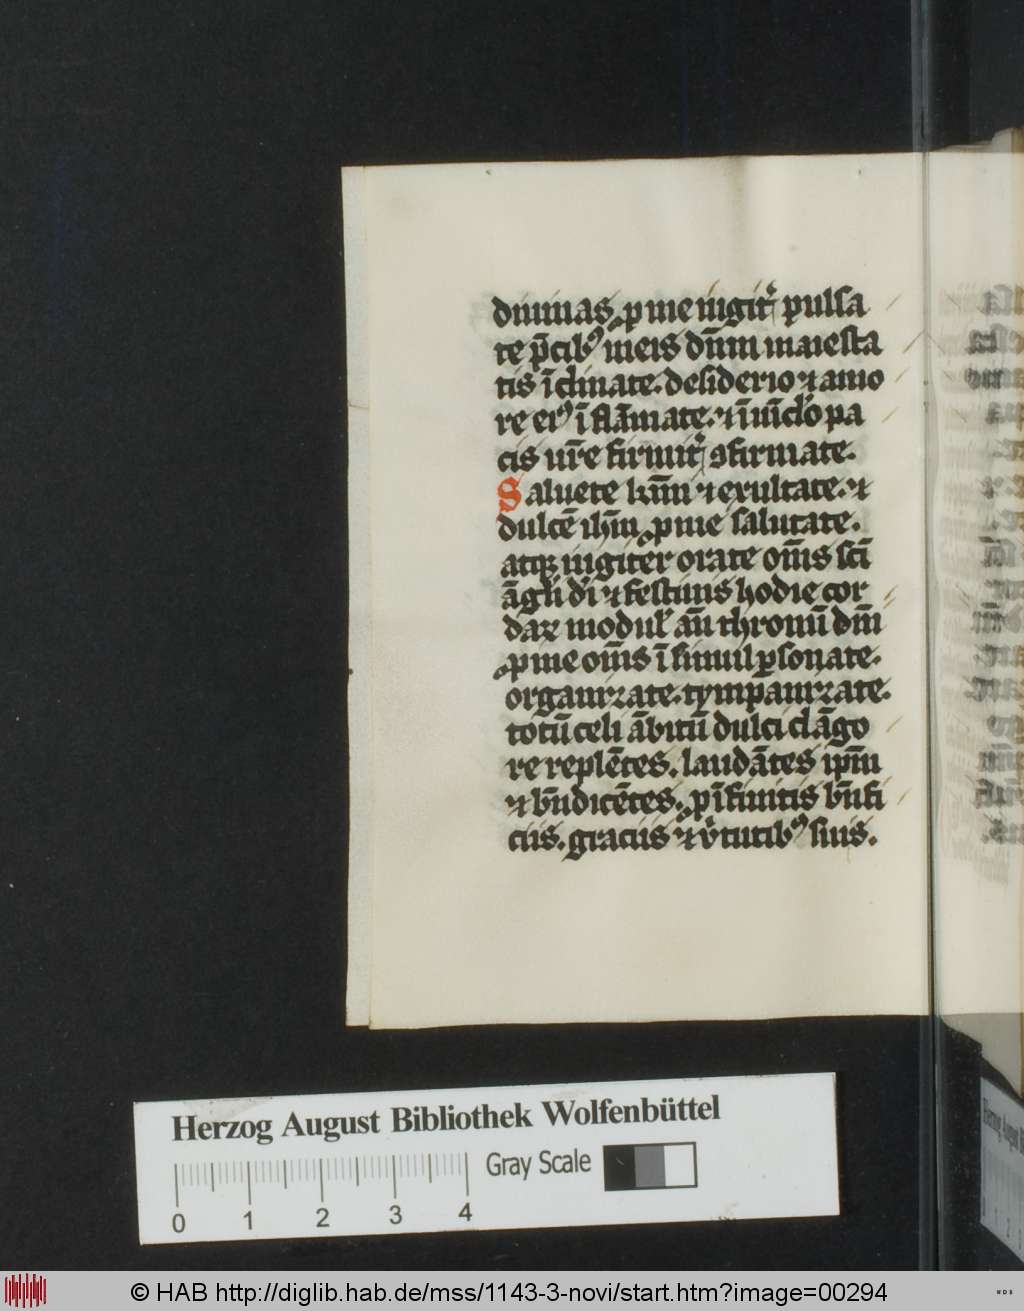 diuinas ꝓ me iugit᷑ pulsa
te p̄cibꝰ meis dn̄m maiesta
tis īclinate. desiderio ⁊ amo
re eiꝰ īflāmate. ⁊ ī uīclo pa
cis ur̄e firmit᷑ ꝯfirmate.
Saluete ⁊ exultate. ⁊
dulcē ihm̄ ꝓ me salutate.
atqꝫ iugiter orate om̄s sc̄i
āgli di ⁊ festiuis hodie cor
daꝝ modul' an̄ thronū dn̄i
ꝓ me om̄s ī simul ꝑsonate.
organizate. tympanizate.
totū celi ābitū dulci clāgo
re replētes. laudātes ip̄m
⁊ bn̄dicētes. ꝓ īfinitis bn̄fi
ciis. graciis ⁊ v̓tutibꝰ suis.
Herzog August Bibliothek Wolfenbüttel
Gray Scale
0 1 2 3 4
© HAB http://diglib.hab.de/mss/1143-3-novi/start.htm?image=00294